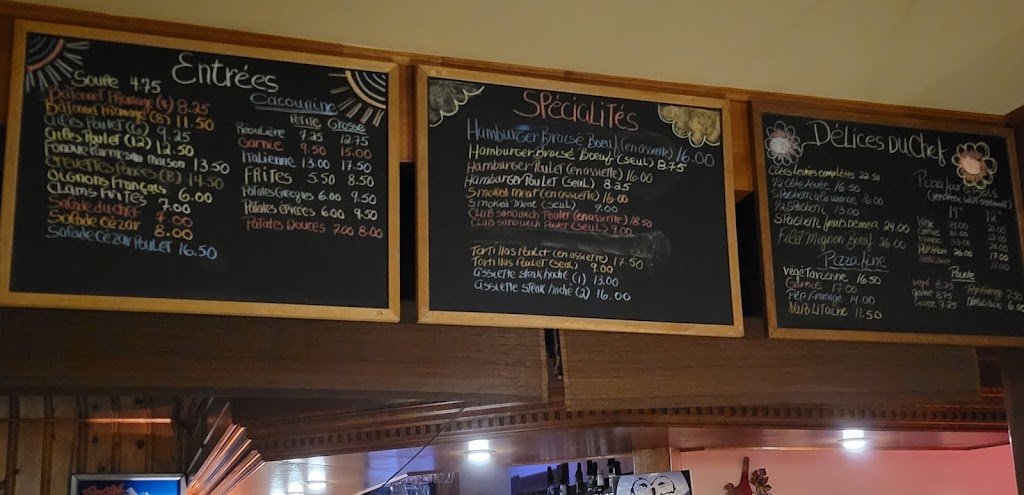 Entrées
Soupe 4.75
Bâtonnet Fromage (4) 8.25
Bâtonnet Fromage (8) 11.50
Ailes Poulet (6) 9.25
Ailes Poulet (12) 12.50
Fondue Parmesan maison 13.50
Crevettes Panées (8) 14.50
Oignons Français 6.00
Clams Frites 7.00
Salade du chef 7.00
Salade César 8.00
Salade Cézar Poulet 16.50
Cacouning
Petite Grosse
Régulière 7.25 12.75
Garnie 9.50 15.00
Italienne 13.00 17.50
Frites 5.50 8.50
Patates Grecques 6.00 9.50
Patates épicées 6.00 9.50
Patates Douces 7.00 8.00
Spécialités
Hamburger Braisé Boeuf (en assiette) 16.00
Hamburger Braisé Boeuf (seul) 8.75
Hamburger Poulet (en assiette) 16.00
Hamburger Poulet (seul) 8.25
Smoked meat (en assiette) 16.00
Smoked meat (seul) 9.00
Club sandwich Poulet (en assiette) 18.50
Club sandwich Poulet (seul) 9.00
Tortillas Poulet (en assiette) 17.50
Tortillas Poulet (seul) 9.00
assiette steak haché (1) 13.00
assiette steak haché (2) 16.00
Délices Du Chef
Côtes Levées complètes 22.50
1/2 côte levée 16.50
Spaghetti 16.00
1/2 Spaghetti 13.00
Spaghetti fruits de mer 24.00
Filet Mignon Boeuf 26.00
Pizza fine
végétarienne 16.50
Garnie 17.00
Pep/fromage 14.00
Napolitaine 11.50
Pizza
12"
Pointe
8.25
Garnie 8.75
6.00